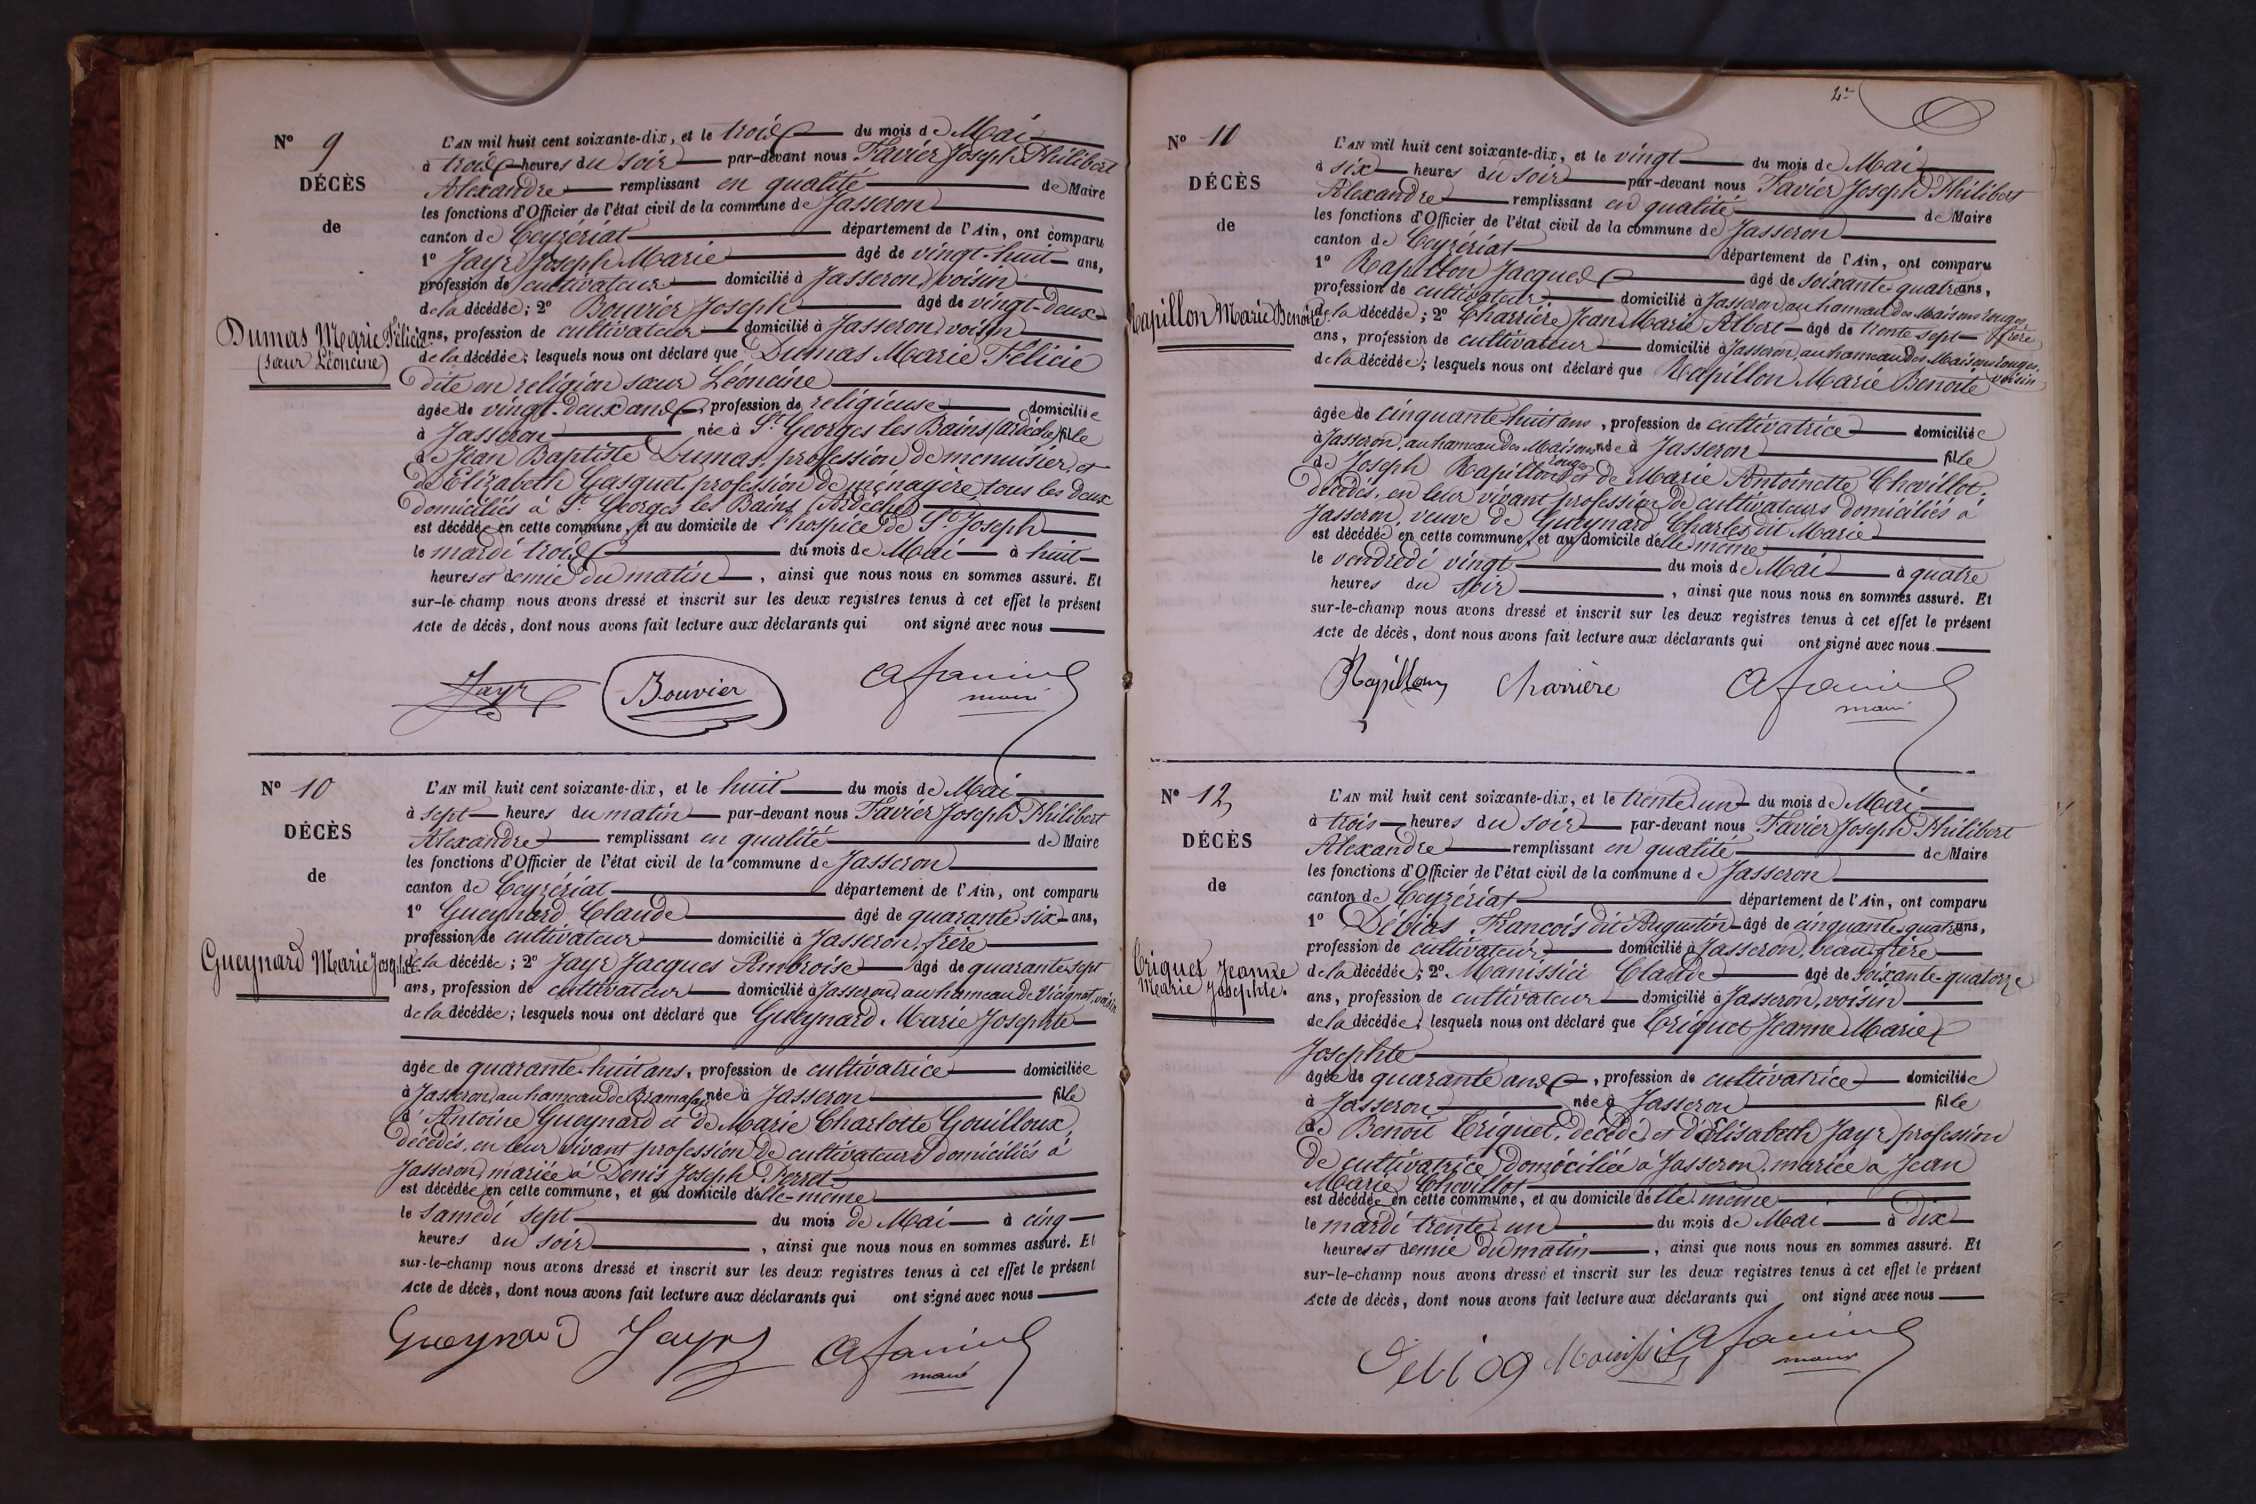 N° 9
DÉCÈS
de
Dumas Marie Félicie
(sœur Léoncine)
L'AN mil huit cent soixante-dix, et le trois du mois de Mai
à trois heures du soir par-devant nous Favier Joseph Philibert
Alexandre remplissant en qualité de Maire
les fonctions d'Officier de l'état civil de la commune de Jasseron
canton de Ceyzériat département de l'Ain, ont comparu
1° Jayr Joseph Marie âgé de vingt-huit ans,
profession de cultivateur domicilié à Jasseron, voisin
de la décédée; 2° Bouvier Joseph âgé de vingt-deux
ans, profession de cultivateur domicilié à Jasseron voisin
de la décédée; lesquels nous ont déclaré que Dumas Marie Félicie
dite en religion sœur Léoncine
âgée de vingt-deux ans, profession de religieuse domiciliée
à Jasseron née à St Georges les Bains (ardèche) fille
de Jean Baptiste Dumas, profession de menuisier, et
de Elizabeth Gasquet profession de ménagère, tous les deux
domiciliés à St Georges les Bains (Ardèche)
est décédée en cette commune, et au domicile de l'hospice de St Joseph
le mardi trois du mois de Mai à huit
heures et demie du matin, ainsi que nous nous en sommes assuré. Et
sur-le-champ nous avons dressé et inscrit sur les deux registres tenus à cet effet le présent
Acte de décès, dont nous avons fait lecture aux déclarants qui ont signé avec nous
Jayr Bouvier A favier
maire
N° 10
DÉCÈS
de
Gueynard Marie Josephte
L'AN mil huit cent soixante-dix, et le huit du mois de Mai
à sept heures du matin par-devant nous Favier Joseph Philibert
Alexandre remplissant en qualité de Maire
les fonctions d'Officier de l'état civil de la commune de Jasseron
canton de Ceyzériat département de l'Ain, ont comparu
1° Gueynard Claude âgé de quarante-six ans,
profession de cultivateur domicilié à Jasseron, frère
de la décédée; 2° Jayr Jacques Ambroise âgé de quarante-sept
ans, profession de cultivateur domicilié à Jasseron, au hameau de Vicignat, voisin
de la décédée; lesquels nous ont déclaré que Gueynard Marie Josephte
âgée de quarante-huit ans, profession de cultivatrice domiciliée
à Jasseron, au hameau de Bramafan née à Jasseron fille
d'Antoine Gueynard et de Marie Charlotte Gouilloux,
décédés, en leur vivant profession de cultivateurs domiciliés à
Jasseron, mariée à Denis Joseph Perret
est décédée en cette commune, et au domicile d'elle-même
le samedi sept du mois de Mai à cinq
heures du soir, ainsi que nous nous en sommes assuré. Et
sur-le-champ nous avons dressé et inscrit sur les deux registres tenus à cet effet le présent
Acte de décès, dont nous avons fait lecture aux déclarants qui ont signé avec nous
Gueynard Jayr A favier
maire
N° 11
DÉCÈS
de
Rapillon Marie Benoite
L'AN mil huit cent soixante-dix, et le vingt du mois de Mai
à six heures du soir par-devant nous Favier Joseph Philibert
Alexandre remplissant en qualité de Maire
les fonctions d'Officier de l'état civil de la commune de Jasseron
canton de Ceyzériat département de l'Ain, ont comparu
1° Rapillon Jacques âgé de soixante-quatre ans,
profession de cultivateur domicilié à Jasseron au hameau des Maisons rouges, frère
de la décédée; 2° Charrière Jean Marie Albert âgé de trente-sept
ans, profession de cultivateur domicilié à Jasseron, au hameau des Maisons rouges, voisin
de la décédée; lesquels nous ont déclaré que Rapillon Marie Benoite
âgée de cinquante-huit ans, profession de cultivatrice domiciliée
à Jasseron, au hameau des Maisons rouges née à Jasseron fille
de Joseph Rapillon et de Marie Antoinette Chevillot,
décédés, en leur vivant profession de cultivateurs domiciliés à
Jasseron, veuve de Gueynard Charles dit Marie
est décédée en cette commune, et au domicile d'elle-même
le vendredi vingt du mois de Mai à quatre
heures du soir, ainsi que nous nous en sommes assuré. Et
sur-le-champ nous avons dressé et inscrit sur les deux registres tenus à cet effet le présent
Acte de décès, dont nous avons fait lecture aux déclarants qui ont signé avec nous.
Rapillon charrière A favier
maire
N° 12
DÉCÈS
de
Criquet Jeanne
Marie Josephte.
L'AN mil huit cent soixante-dix, et le trente-un du mois de Mai
à trois heures du soir par-devant nous Favier Joseph Philibert
Alexandre remplissant en qualité de Maire
les fonctions d'Officier de l'état civil de la commune de Jasseron
canton de Ceyzériat département de l'Ain, ont comparu
1° Débias François dit Augustin âgé de cinquante-quatre ans,
profession de cultivateur domicilié à Jasseron, beau-frère
de la décédée; 2° Manissié Claude âgé de soixante-quatorze
ans, profession de cultivateur domicilié à Jasseron, voisin
de la décédée; lesquels nous ont déclaré que Criquet Jeanne Marie
Josephte
âgée de quarante ans, profession de cultivatrice domiciliée
à Jasseron née à Jasseron fille
de Benoit Criquet, décédé, et d'Elisabeth Jayr, profession
de cultivatrice, domiciliée à Jasseron, mariée à Jean
Marie Chevillot
est décédée en cette commune, et au domicile d'elle-même
le mardi trente-un du mois de Mai à dix
heures et demie du matin, ainsi que nous nous en sommes assuré. Et
sur-le-champ nous avons dressé et inscrit sur les deux registres tenus à cet effet le présent
Acte de décès, dont nous avons fait lecture aux déclarants qui ont signé avec nous
A favier
maire